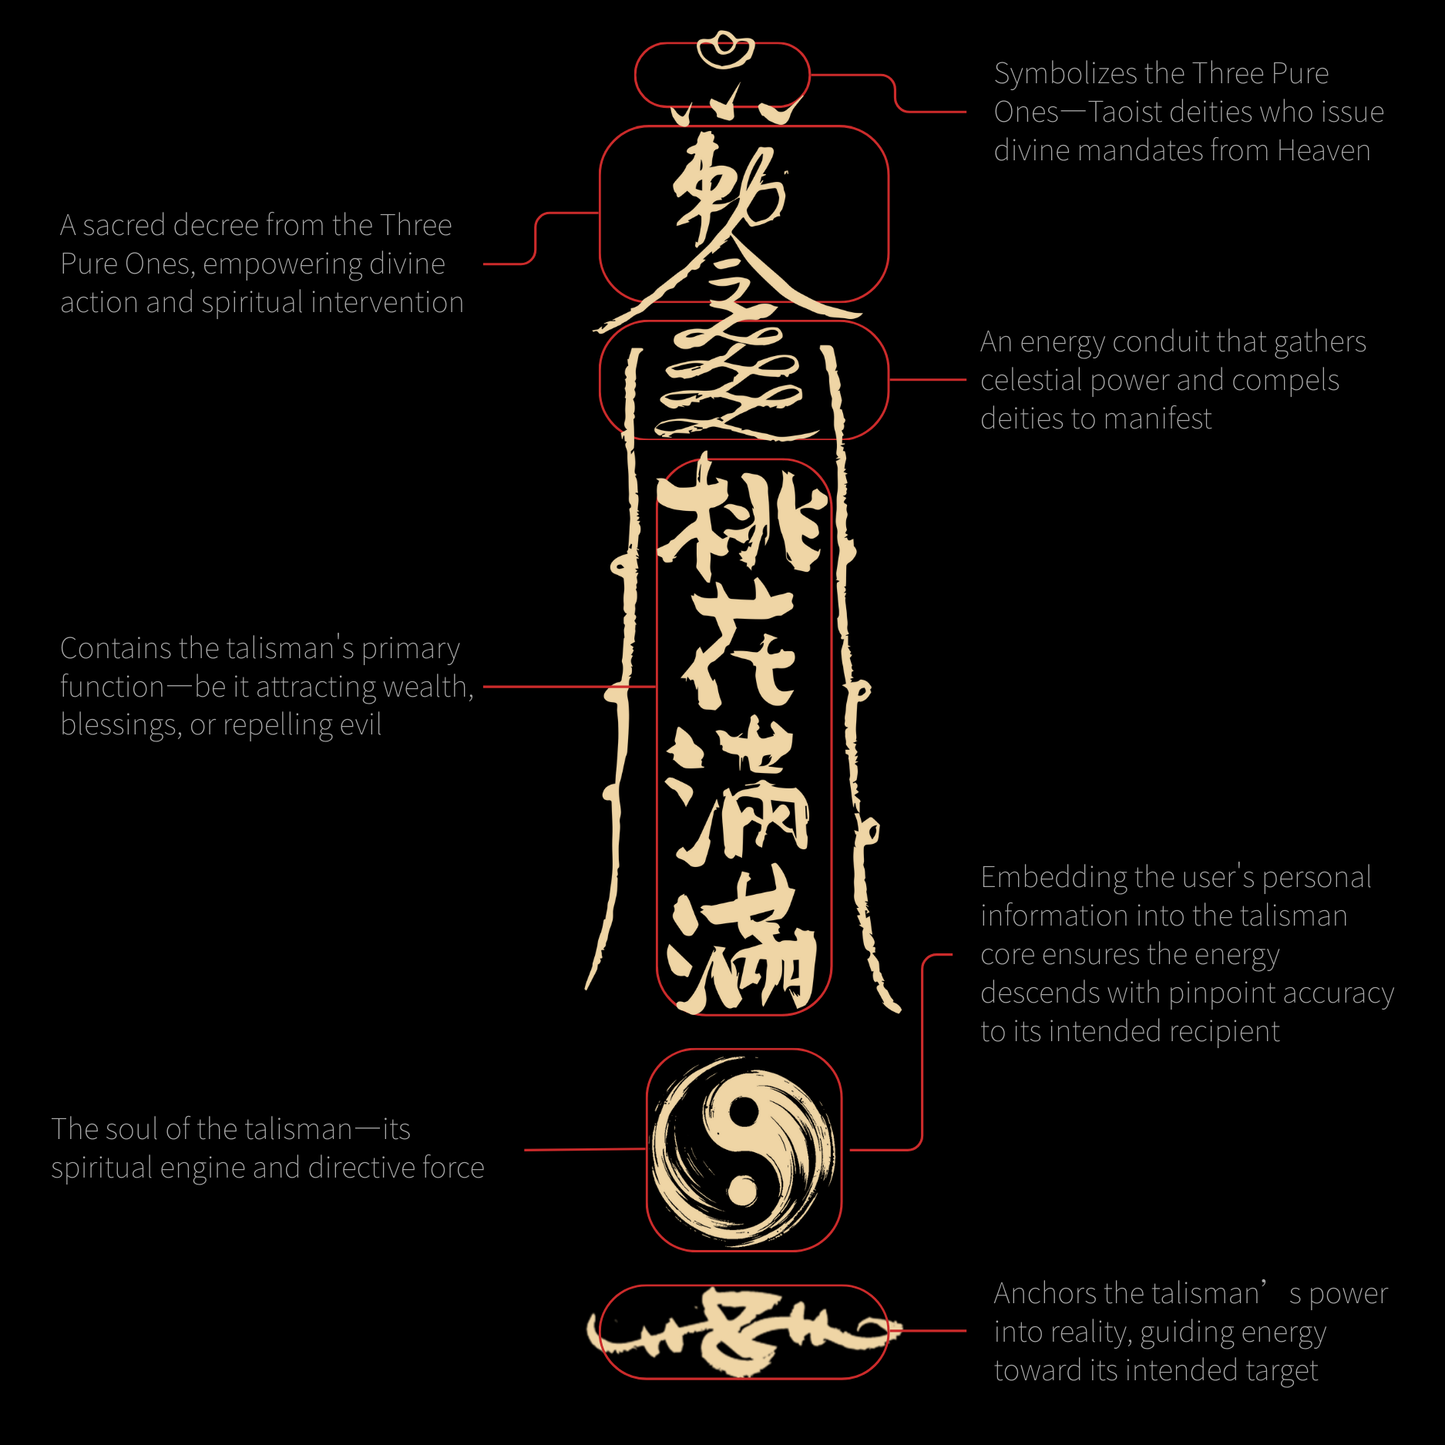 Symbolizes the Three Pure
Ones—Taoist deities who issue
divine mandates from Heaven
勅
令
A sacred decree from the Three
Pure Ones, empowering divine
action and spiritual intervention
An energy conduit that gathers
celestial power and compels
deities to manifest
桃
花
滿
滿
Contains the talisman's primary
function—be it attracting wealth,
blessings, or repelling evil
Embedding the user's personal
information into the talisman
core ensures the energy
descends with pinpoint accuracy
to its intended recipient
The soul of the talisman—its
spiritual engine and directive force
Anchors the talisman’s power
into reality, guiding energy
toward its intended target